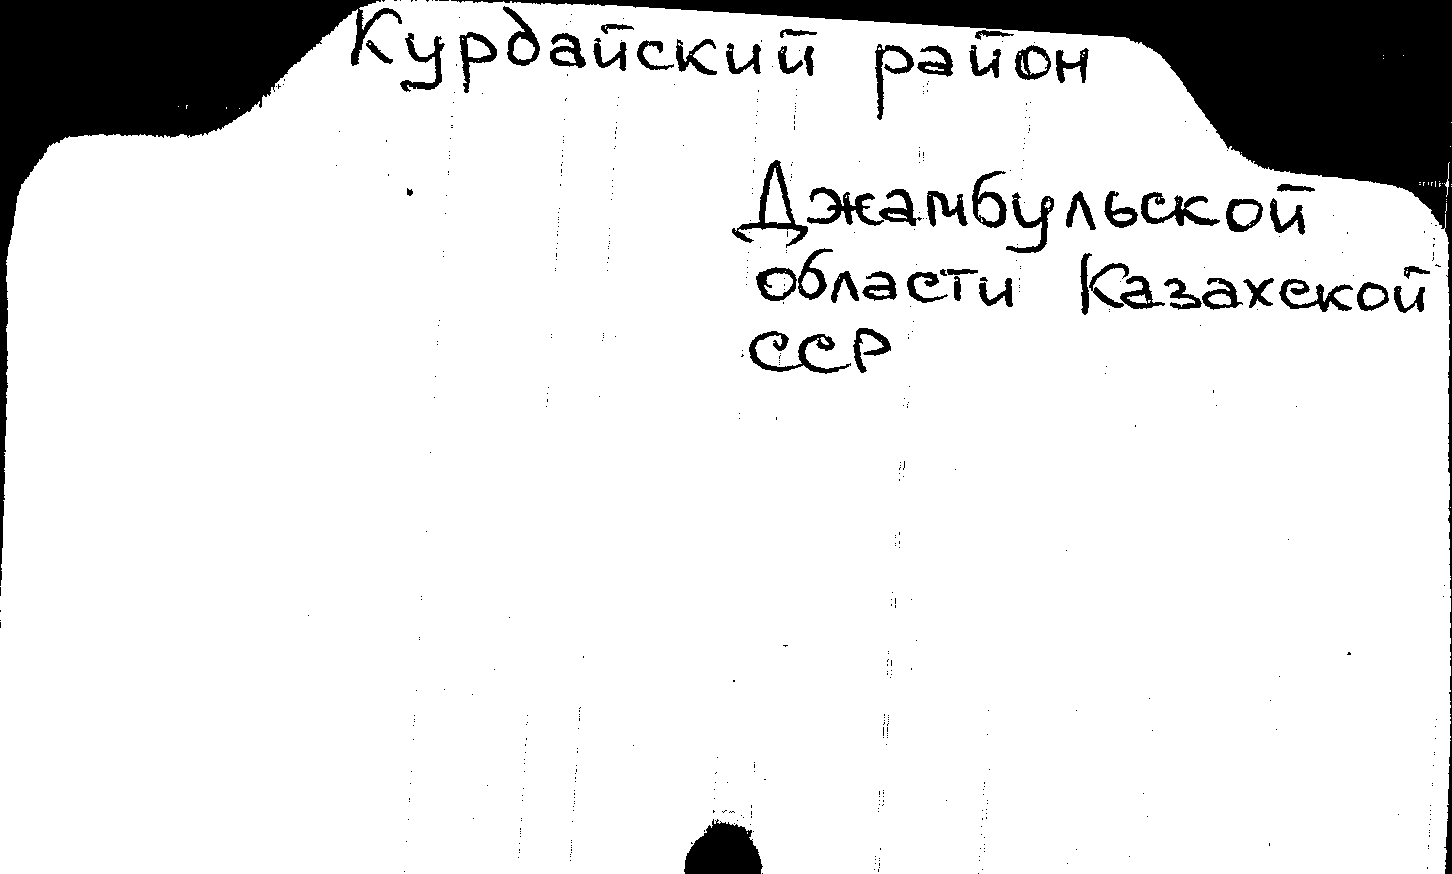 Курдайский район
Джамбульской
области Казахской
ССР